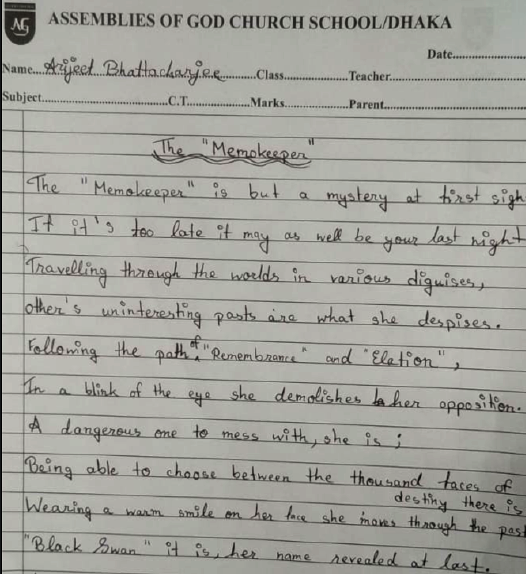 AG
ASSEMBLIES OF GOD CHURCH SCHOOL/DHAKA
Date....................
Name...Arijeet Bhattacharjee..........Class....................Teacher....................
Subject....................C.T....................Marks....................Parent....................
The "Memokeeper"
The "Memokeeper" is but a mystery at first sigh
If it's too late it may as well be your last night
Travelling through the worlds in various diguises,
other's uninteresting pasts are what she despises.
Following the path of "Remembrance" and "Elation",
In a blink of the eye she demolishes her opposition.
A dangerous one to mess with, she is ;
Being able to choose between the thousand faces of
destiny there is
Wearing a warm smile on her face she moves through the past
"Black Swan" it is, her name revealed at last.